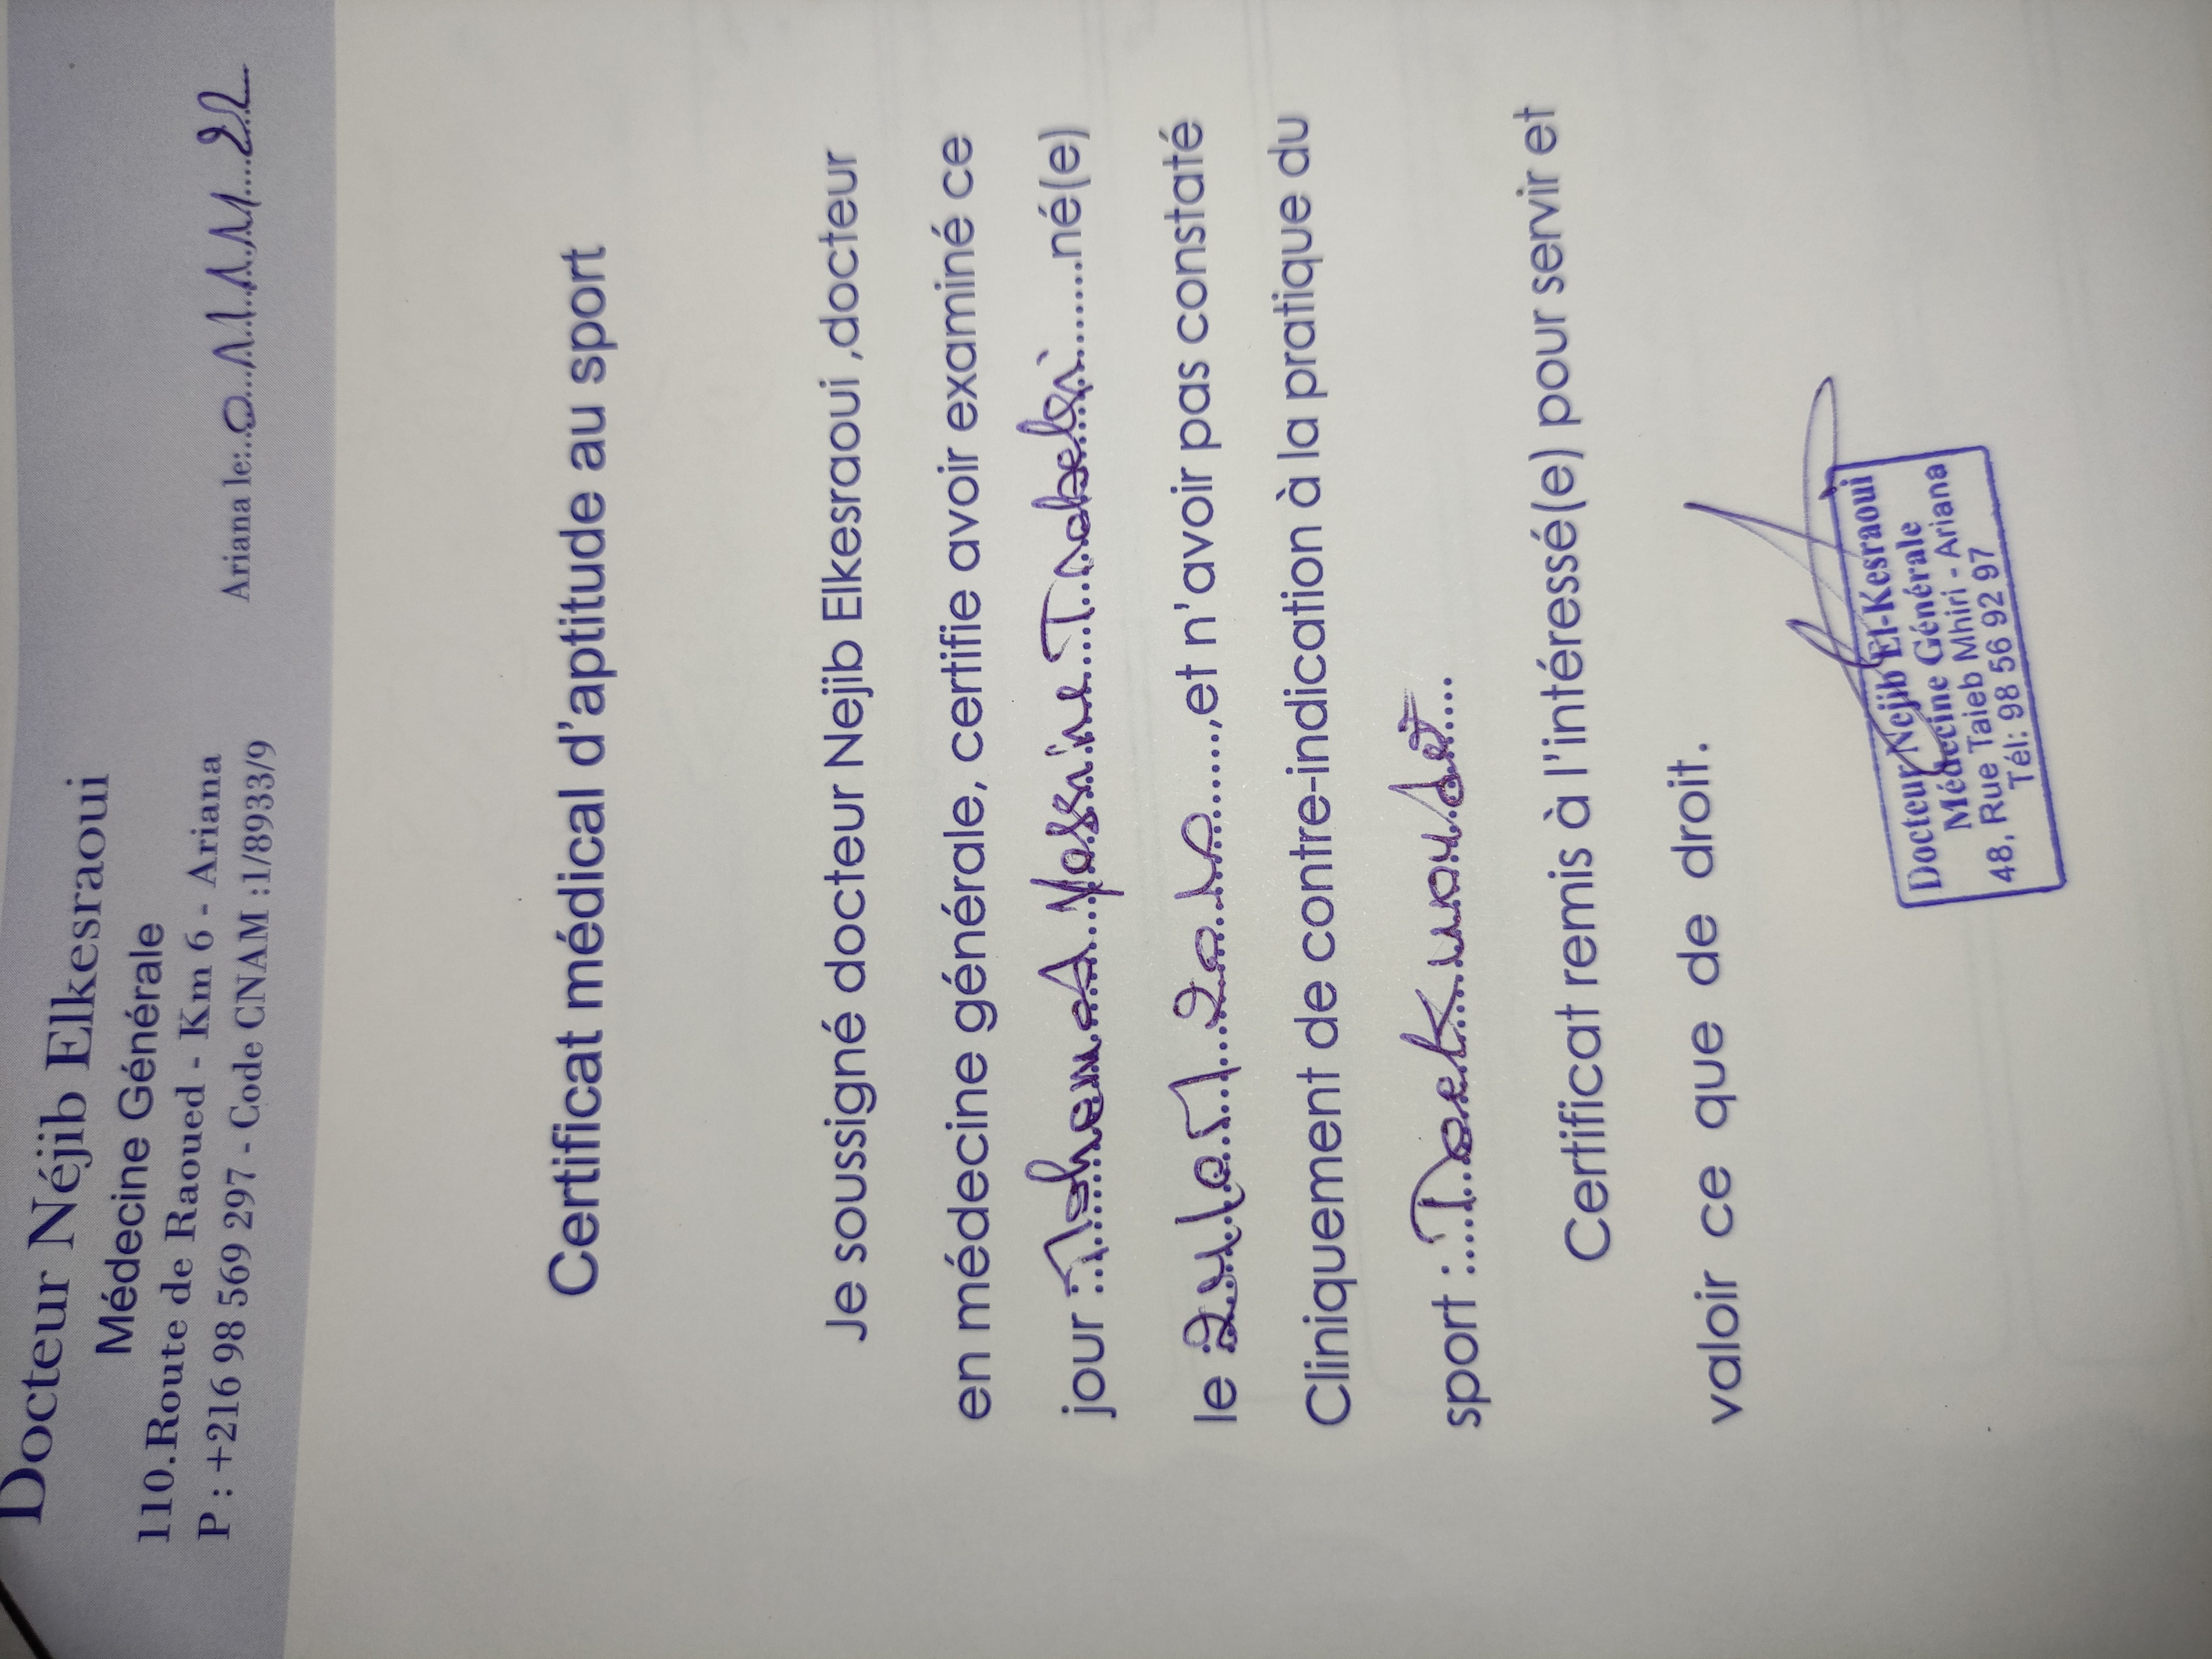 Docteur Néjib Elkesraoui
Médecine Générale
110.Route de Raoued - Km 6 - Ariana
P : +216 98 569 297 - Code CNAM :1/8933/9
Ariana le:..01/11/22
Certificat médical d'aptitude au sport
Je soussigné docteur Nejib Elkesraoui ,docteur
en médecine générale, certifie avoir examiné ce
jour : Mohamed Yassine Trabelsi né(e)
le 24/07/2010,et n'avoir pas constaté
Cliniquement de contre-indication à la pratique du
sport :
Certificat remis à l'intéressé(e) pour servir et
valoir ce que de droit.
Docteur Nejib El-Kesraoui
Médecine Générale
48, Rue Taieb Mhiri - Ariana
Tél: 98 56 92 97